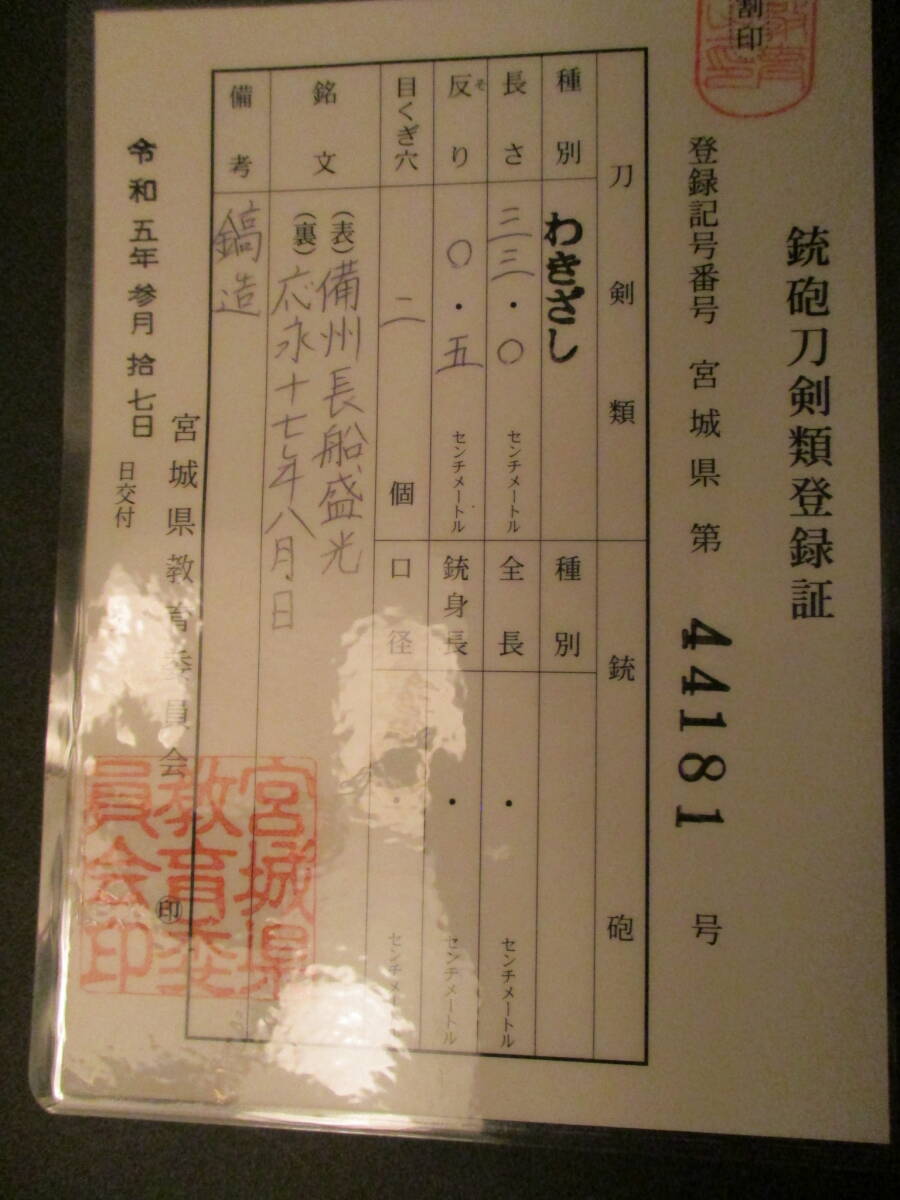 割印
銃砲刀剣類登録証
登録記号番号 宮城県 第 44181 号
刀剣類
種別 わきざし
長さ 三三・〇 センチメートル
反り 〇・五 センチメートル
そ
目くぎ穴 二 個
銘文 (表) 備州長船盛光
(裏) 応永十七年八月日
備考 鎬造
銃砲
種別
全長 ・ センチメートル
銃身長 ・ センチメートル
口径 ・ センチメートル
令和五年参月拾七日 日交付
宮城県教育委員会 印
宮城県
教育委
員会印